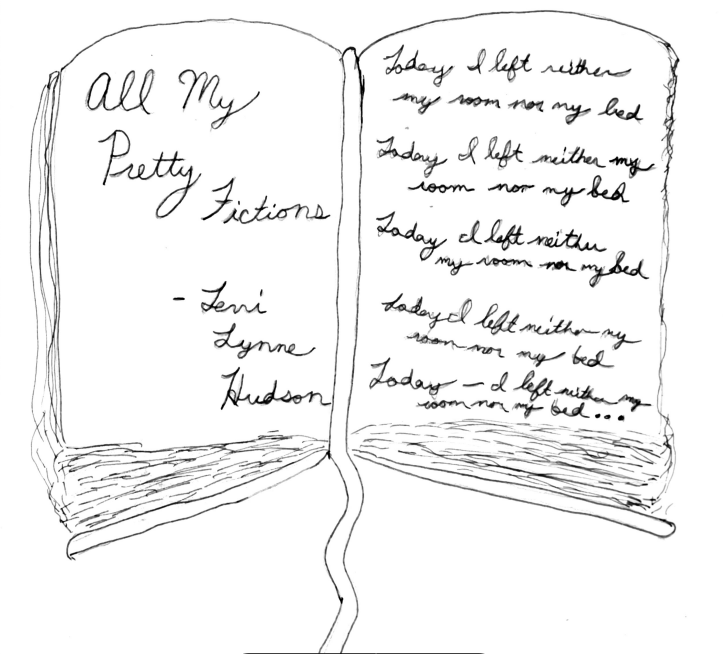 All My
Pretty
Fictions
- Terri
Lynne
Hudson
Today I left neither
my room nor my bed
Today I left neither my
room nor my bed
Today I left neither
my room nor my bed
Today I left neither my
room nor my bed
Today - I left neither my
room nor my bed...